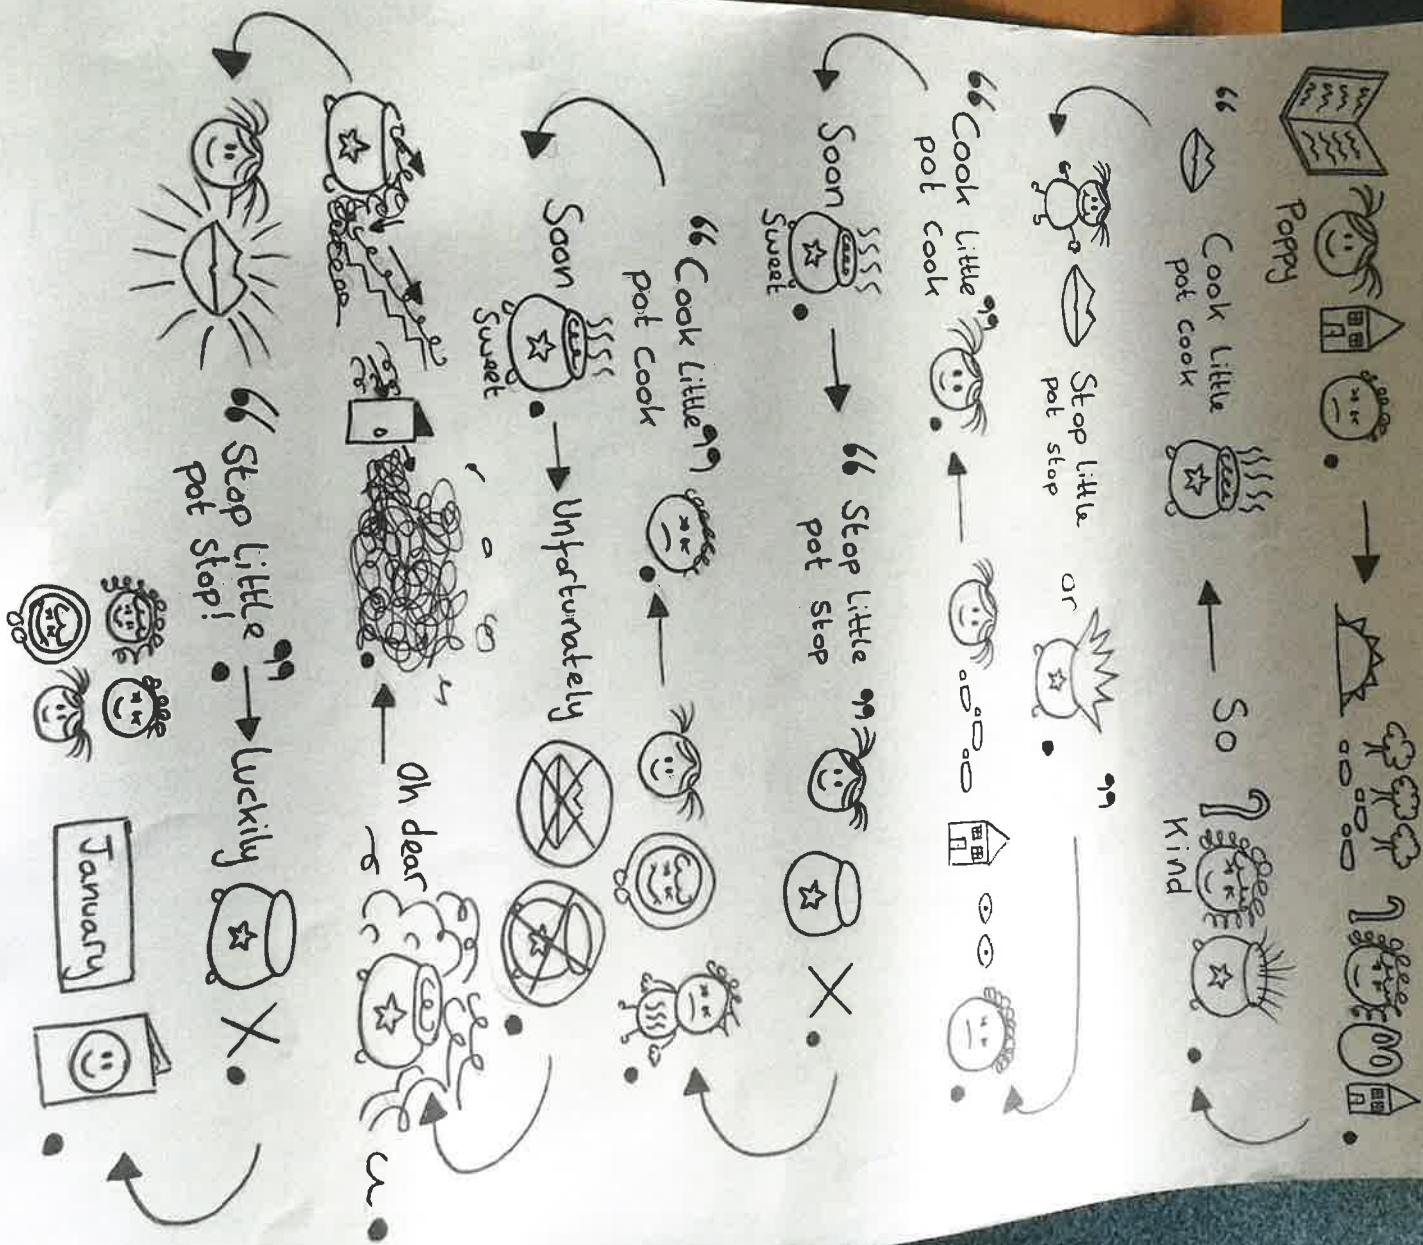 Poppy
So
Kind
" Cook little
pot cook
Stop little
pot stop
or "
"Cook little"
pot cook
Soon
Sweet
"Stop little
pot stop"
"Cook little"
pot cook
Soon
Sweet
Unfortunately
Oh dear
"Stop little
pot stop!"
Luckily
January